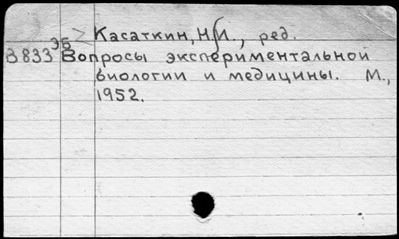 Касаткин, Н.И., ред.
В833 Эб Вопросы экспериментальной
биологии и медицины. М.,
1952.